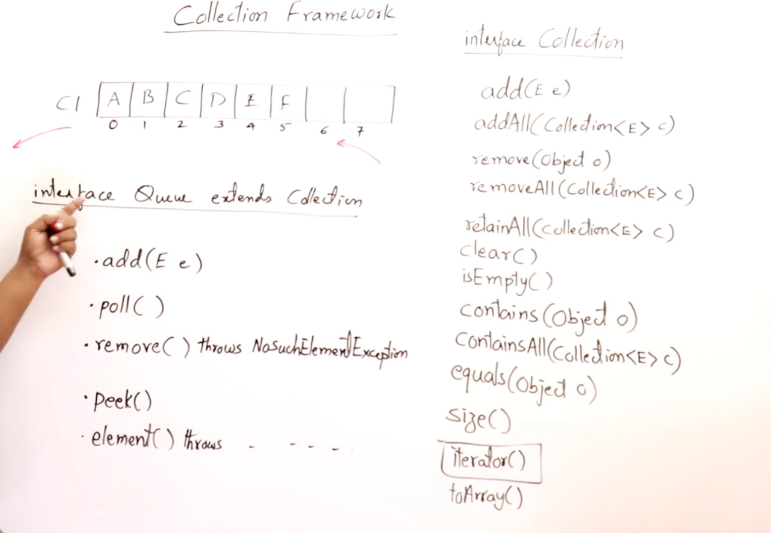 Collection Framework
C1 A B C D E F
0 1 2 3 4 5 6 7
interface Queue extends Collection
·add(E e)
·poll()
·remove() throws NosuchElementException
·peek()
·element() throws - - - - .
interface Collection
add(E e)
addAll(Collection<E> c)
remove(Object o)
removeAll(Collection<E> c)
retainAll(Collection<E> c)
clear()
isEmpty()
contains(Object o)
containsAll(Collection<E> c)
equals(Object o)
size()
iterator()
toArray()